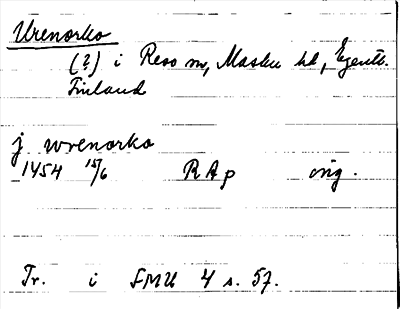 Urenorko
(?) i Reso sn, Masku hd, Egentl.
Finland
j wrenorko
1454 15/6 RAp orig.
Tr. i FMU 4 s. 57.